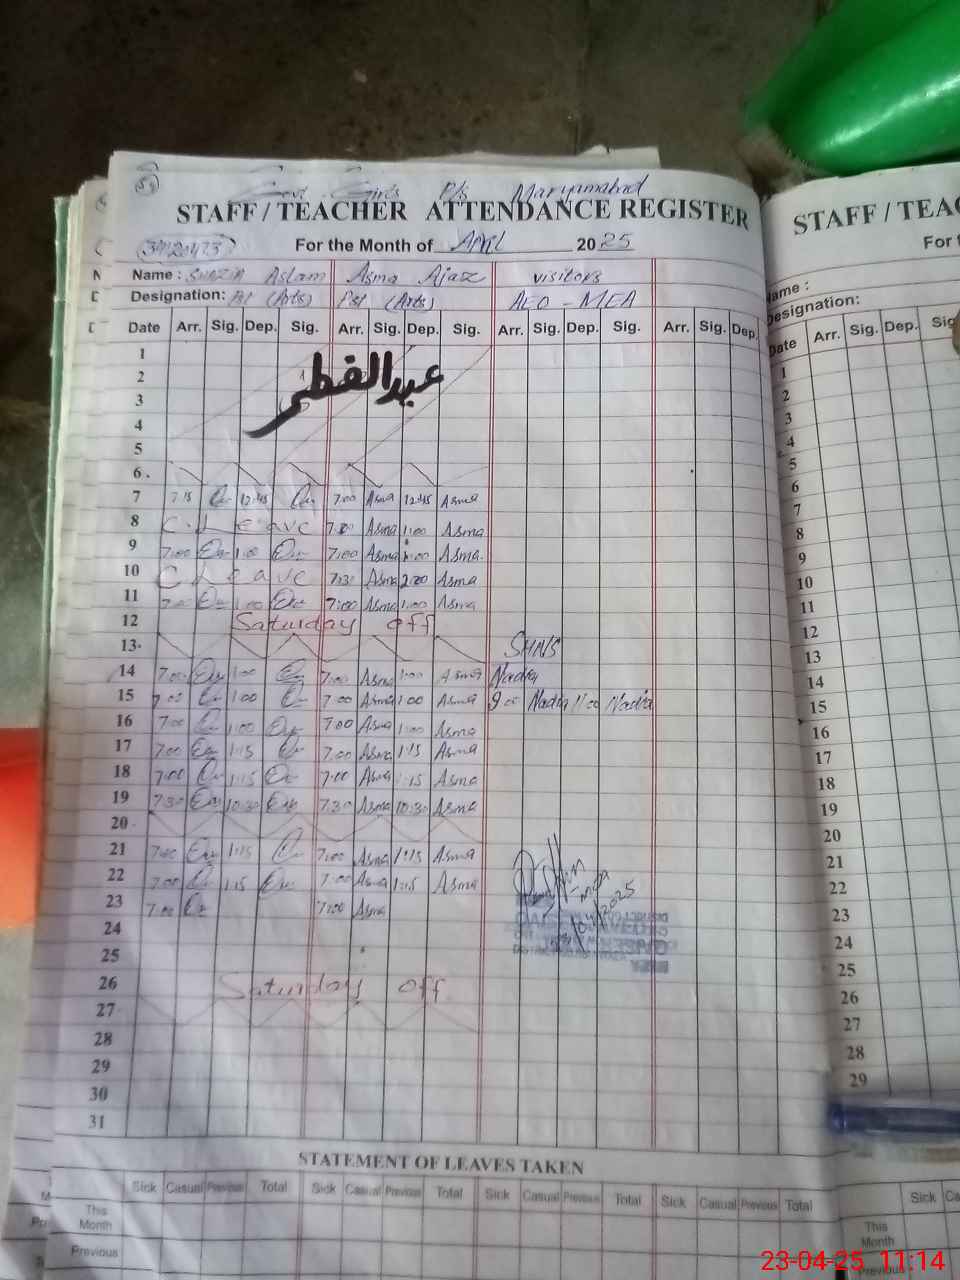 Govt. Girls P/s Maryamabad
STAFF / TEACHER ATTENDANCE REGISTER
34120473 For the Month of April 2025
Name : Shazia Aslam Asma Ajaz visitors
Designation: PST (Arts) PST (Arts) AEO - MEA
Date Arr. Sig. Dep. Sig. Arr. Sig. Dep. Sig. Arr. Sig. Dep. Sig. Arr. Sig. Dep.
1
عيد الفطر
2
3
4
5
6
7 7:15 12:45 7:00 Asma 12:45 Asma
8 C. Leave 7:00 Asma 1:00 Asma
9 7:00 1:00 7:00 Asma 1:00 Asma
10 C Leave 7:30 Asma 2:00 Asma
11 7:00 1:00 7:00 Asma 1:00 Asma
12 Saturday off
13 SHNS
14 7:00 1:00 7:00 Asma 1:00 Asma Nadia
15 7:00 1:00 7:00 Asma 1:00 Asma 9:00 Nadia 11:00 Nadia
16 7:00 1:00 7:00 Asma 1:00 Asma
17 7:00 1:15 7:00 Asma 1:15 Asma
18 7:00 1:15 7:00 Asma 1:15 Asma
19 7:30 10:30 7:30 Asma 10:30 Asma
20
21 7:00 1:15 7:00 Asma 1:15 Asma
22 7:00 1:15 7:00 Asma 1:15 Asma
23 7:00 7:00 Asma
23/04/2025
24
25
26 Saturday off
27
28
29
30
31
STATEMENT OF LEAVES TAKEN
Sick Casual Previous Total Sick Casual Previous Total Sick Casual Previous Total Sick Casual Previous Total
This Month
Previous
STAFF / TEAC
For t
Name :
Designation:
Date Arr. Sig. Dep. Sig
1
2
3
4
5
6
7
8
9
10
11
12
13
14
15
16
17
18
19
20
21
22
23
24
25
26
27
28
29
Sick Ca
This Month
Previous
23-04-25 11:14